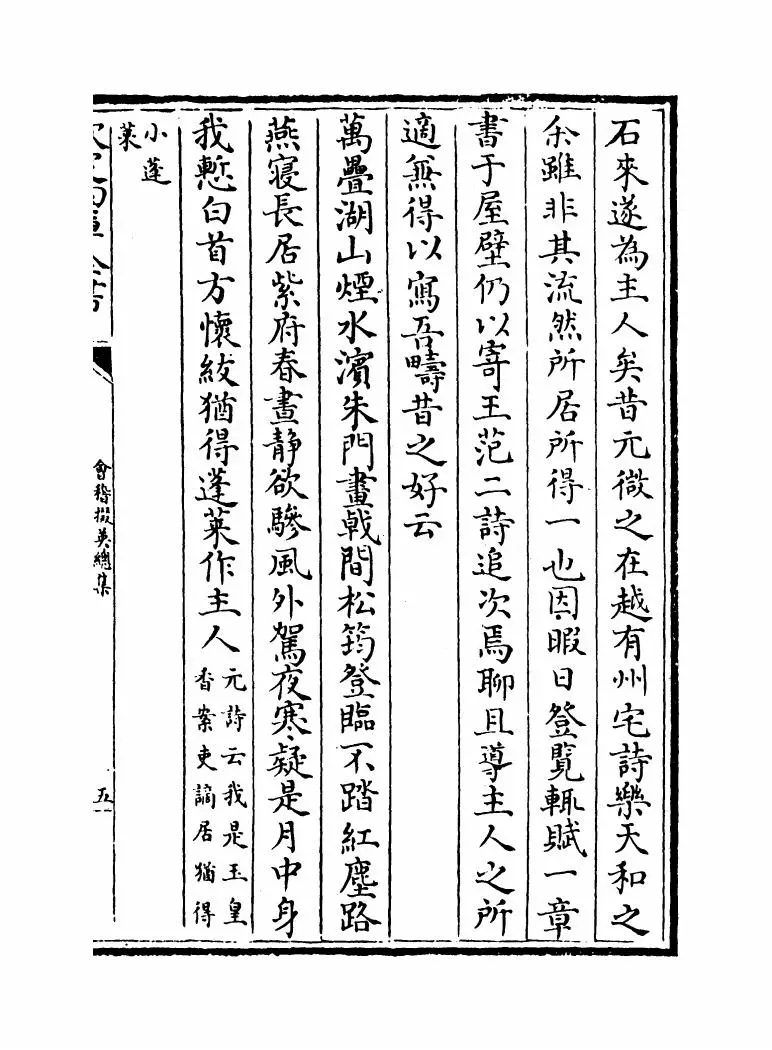 石來遂為主人矣昔元微之在越有州宅詩樂天和之
余雖非其流然所居所得一也因暇日登覽輒賦一章
書于屋壁仍以寄王范二詩追次焉聊且導主人之所
適無得以寫吾疇昔之好云
萬疊湖山煙水濱朱門畫㦸間松筠登臨不踏紅塵路
燕寢長居紫府春晝静欲驂風外駕夜寒疑是月中身
我慙白首方懷紱猶得蓬萊作主人
元詩云我是玉皇
香案吏謫居猶得
小蓬
萊
會稽掇英總集
五